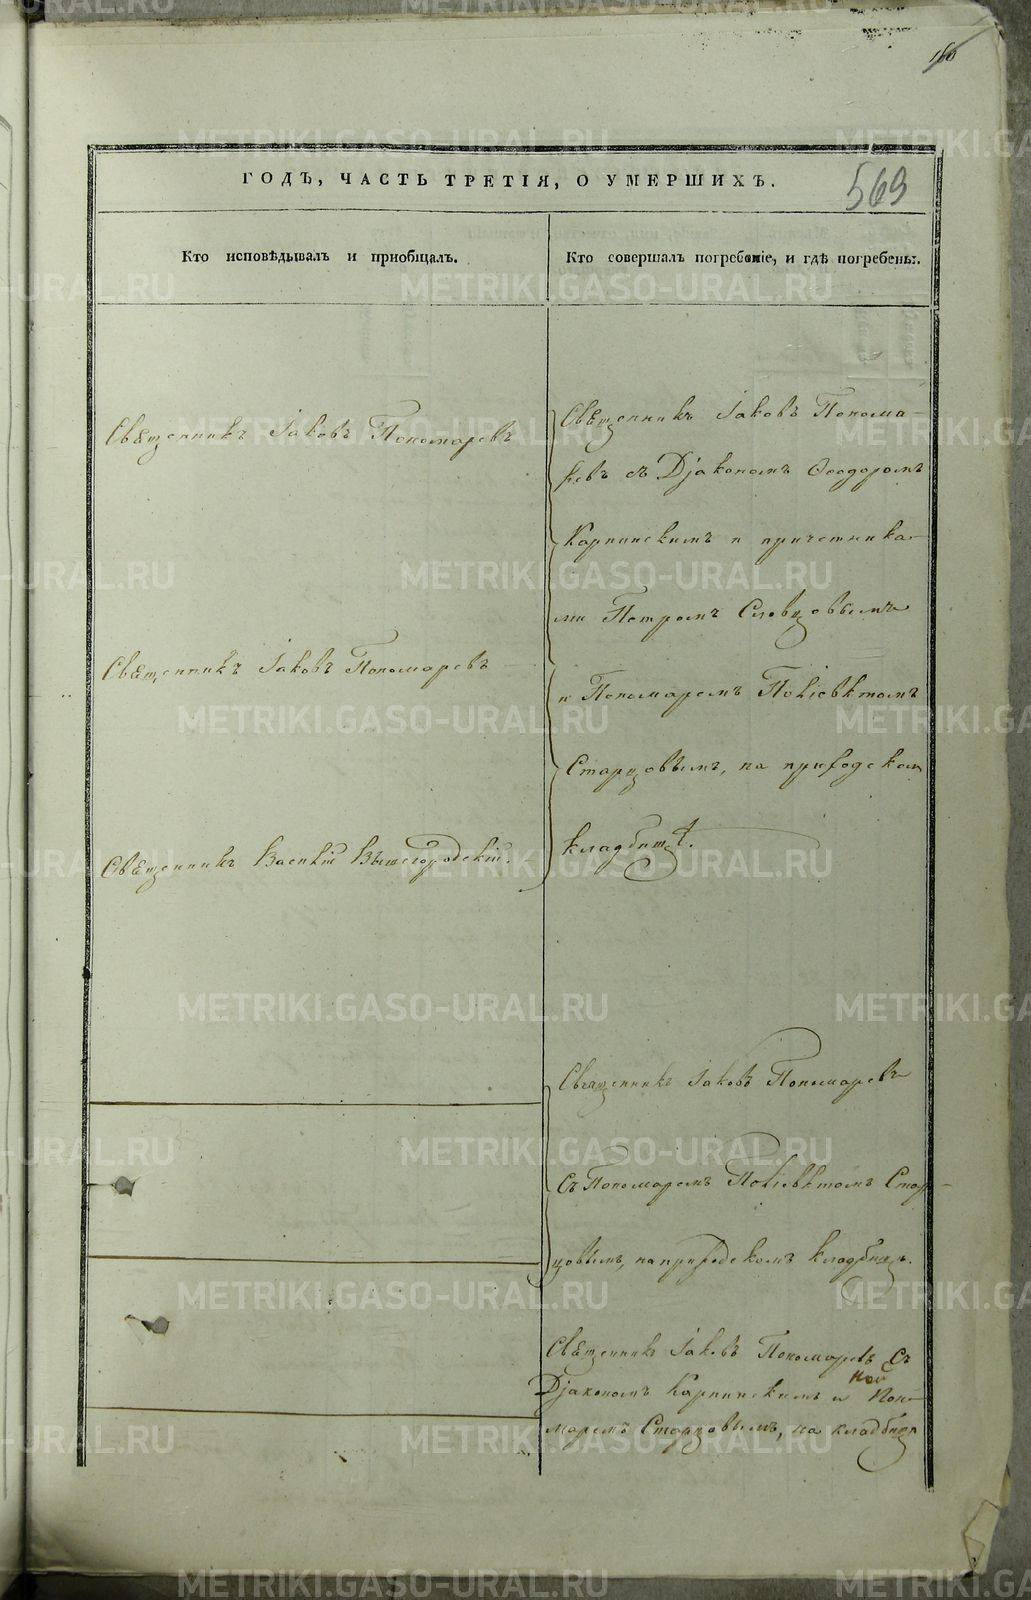 160
ГОДЪ, ЧАСТЬ ТРЕТІЯ, О УМЕРШИХЪ.
569
Кто исповѣдывалъ и приобщалъ.
Кто совершалъ погребеніе, и гдѣ погребены.
Священникъ Іаковъ Пономаревъ
Священникъ Іаковъ Пономаревъ
Священникъ Василій Вышегородскій.
Священникъ Іаковъ Понома-
ревъ съ Діакономъ Ѳеодоромъ
Карпинскимъ и причетника-
ми Петромъ Словцовымъ
и Пономаремъ Поліевктомъ
Старцовымъ, на приходском
кладбищѣ.
Священникъ Іаковъ Пономаревъ
съ Пономаремъ Поліевктомъ Стар-
цовымъ, на приходскомъ кладбищѣ.
Священникъ Іаковъ Пономаревъ съ
Діакономъ Карпинскимъ и Поно-
маремъ Старцовымъ, на кладбищѣ
METRIKI.GASO-URAL.RU